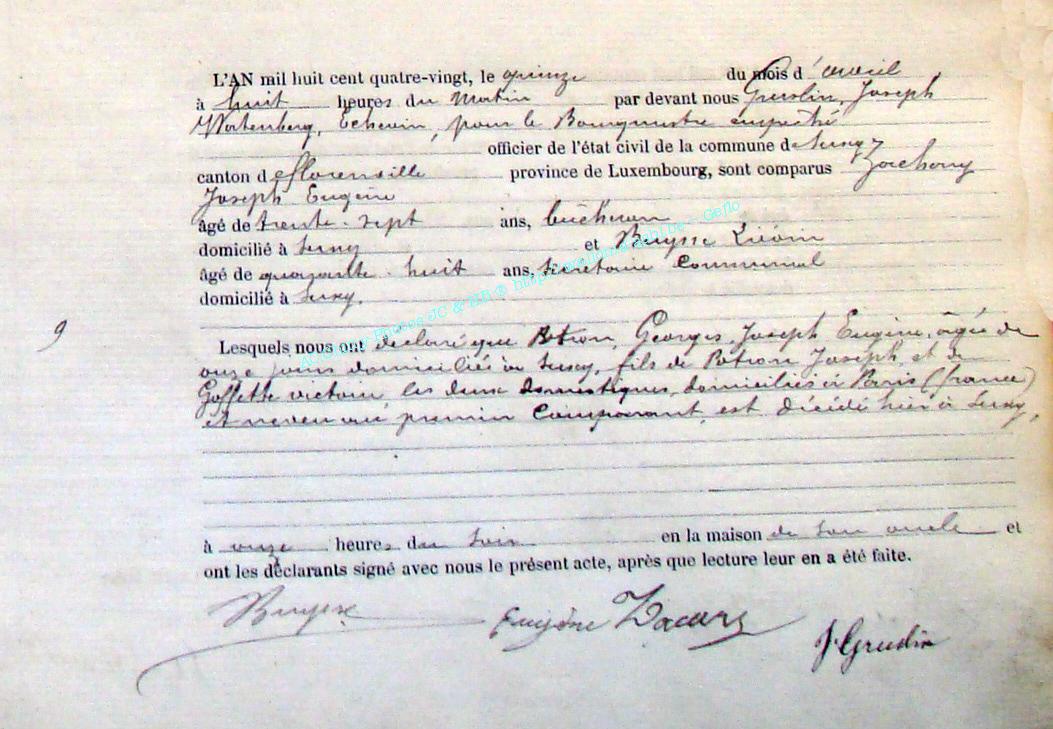 L'AN mil huit cent quatre-vingt, le quinze du mois d'avril
à huit heures du matin par devant nous Gruslin, Joseph
Échevin, pour le Bourgmestre empêché
officier de l'état civil de la commune de Suxy
canton de florenville province de Luxembourg, sont comparus
Joseph Eugène
âgé de trente-sept ans, bûcheron
domicilié à Suxy et Buysse Liévin
âgé de quarante-huit ans, secretaire Communal
domicilié à Suxy.
9
Lesquels nous ont déclaré que Potron, Georges-Joseph Eugène, âgée de
onze jours domiciliés à Suxy, fils de Potron Joseph et de
Goffette victoire les deux domestiques, domiciliés à Paris (france)
et neveu au premier Comparant est décédé hier à Suxy,
à onze heures du soir en la maison de son oncle et
ont les déclarants signé avec nous le présent acte, après que lecture leur en a été faite.
Buysse Eugène J. Gruslin